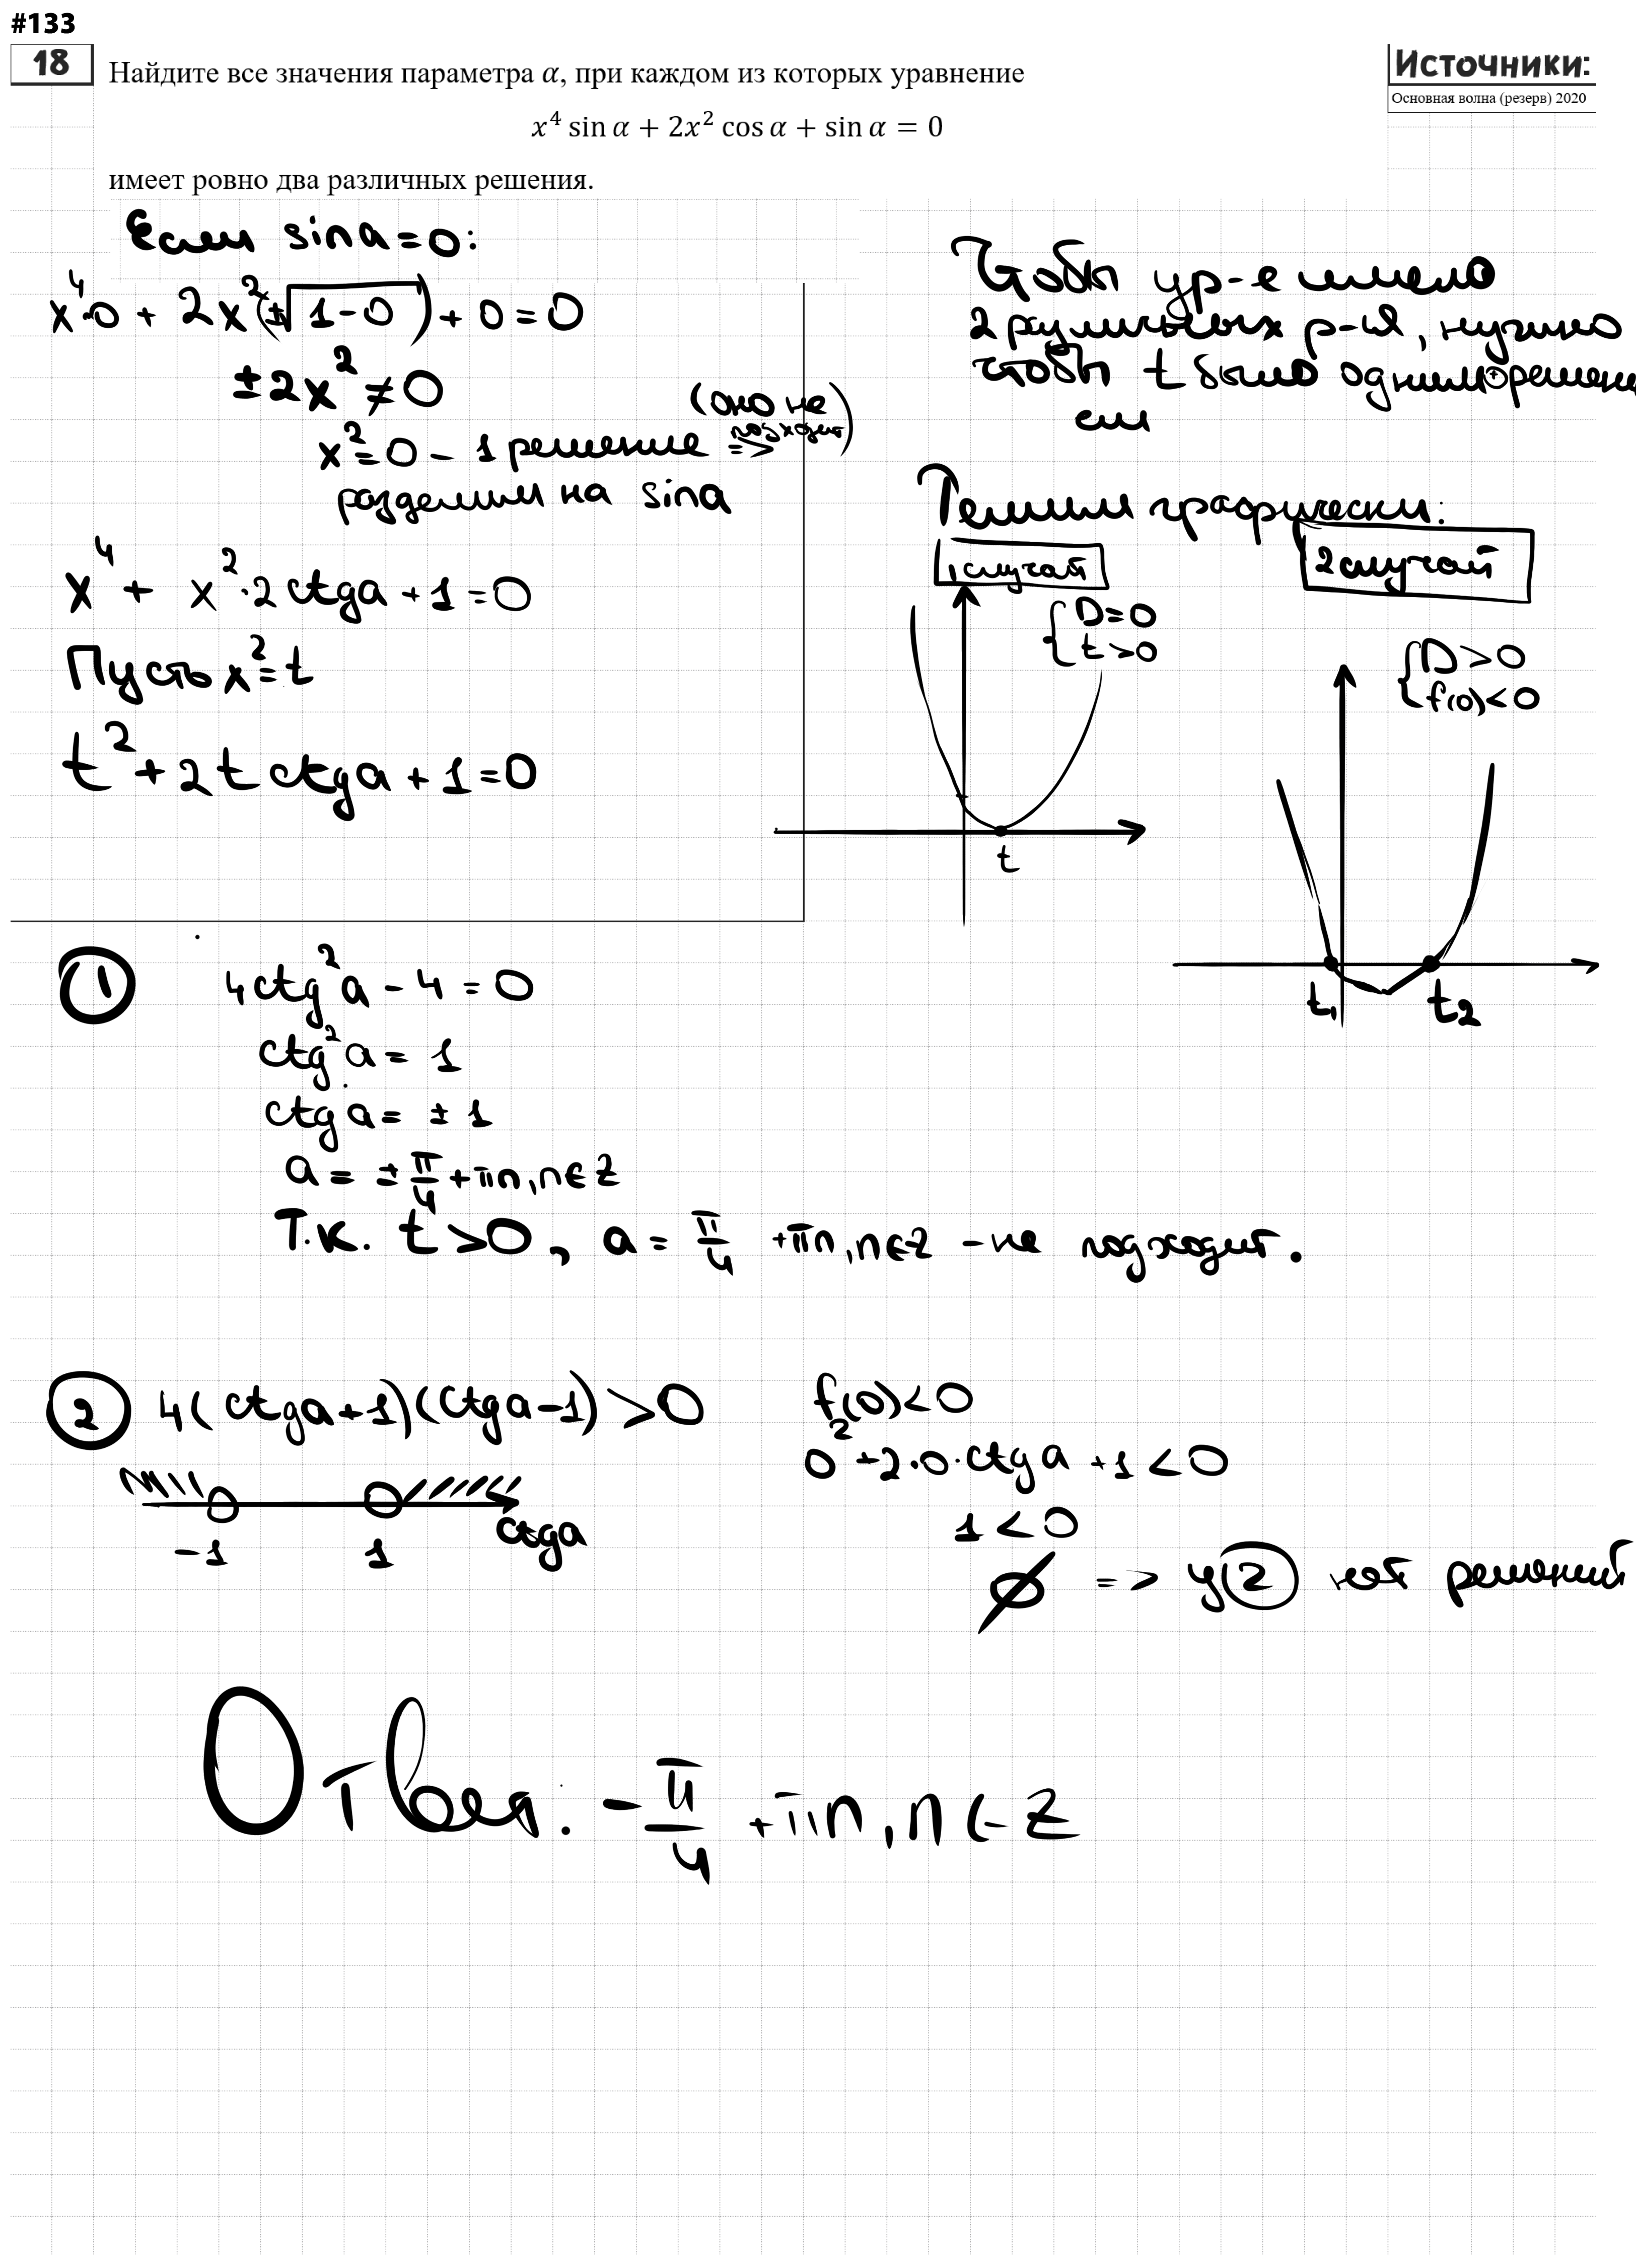 #133
18
Найдите все значения параметра α, при каждом из которых уравнение
x⁴ sin α + 2x² cos α + sin α = 0
имеет ровно два различных решения.
Источники:
Основная волна (резерв) 2020
Если sina=0:
x⁴·0 + 2x²(±√(1-0)) + 0 = 0
±2x² ≠ 0
x² = 0 - 1 решение => (оно не подходит)
разделим на sina
x⁴ + x²·2ctga + 1 = 0
Пусть x² = t
t² + 2t ctga + 1 = 0
Чтобы ур-е имело
2 различных р-ия, нужно
чтобы t было одним + решени
ем
Решим графически:
1 случай
D=0
t>0
t
2 случай
D>0
f(0)<0
t₁ t₂
1
4ctg²a - 4 = 0
ctg²a = 1
ctga = ±1
a = ±π/4 + πn, n∈Z
Т.к. t>0, a = π/4 + πn, n∈Z - не подходит.
2 4(ctga+1)(ctga-1)>0
-1 1 ctga
f(0)<0
0² + 2·0·ctga + 1 < 0
1 < 0
∅ => у 2 нет решений
Ответ: -π/4 + πn, n∈Z